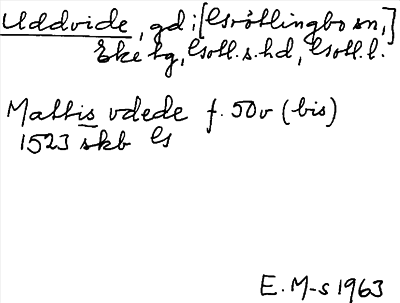 Uddvide, gd; [Grötlingbo sn,]
Eke tg, Gotl. s. hd, Gotl. l.
Mattis vdede f. 50v (bis)
1523 skb
E. M-s 1963